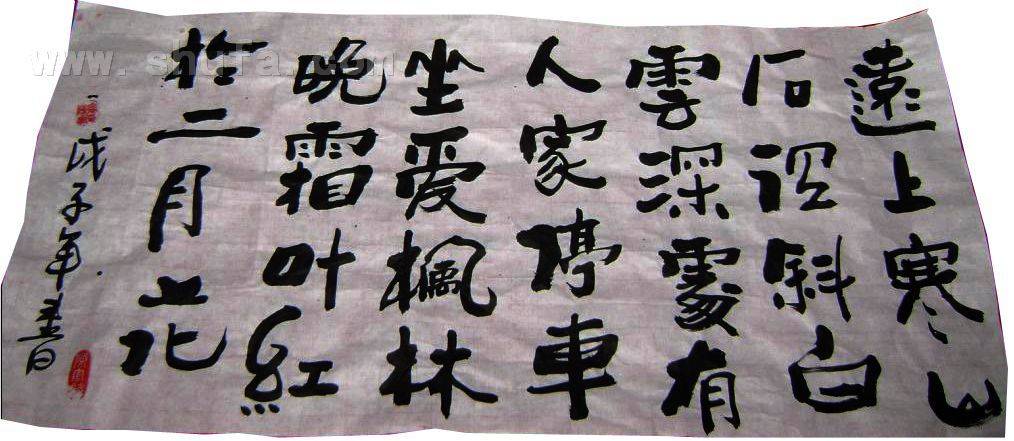 遠上寒山
石径斜白
雲深處有
人家停車
坐爱楓林
晚霜叶紅
於二月花
戊子年春日
www.shufa.com